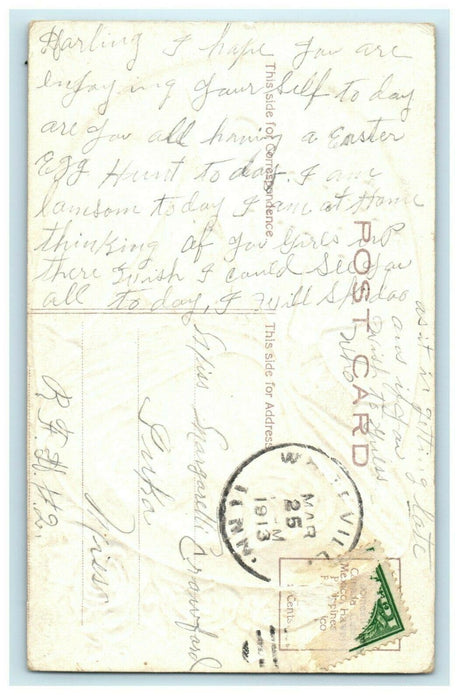 Harling I hope you are
enjoying yourself to day
are you all having a Easter
Egg Hunt to day. I am
lonsom to day I am at Home
thinking of you Girls up
there I wish I could See you
all to day, I Will
as it is getting late
and if you
wish to
This side for Correspondence
POST CARD
This side for Address
Miss Margarett Crawford
Iuka
Miss
R.F.D. #2.
MAR
25
M
1913
TENN.
Mexico
Philippines
Cents